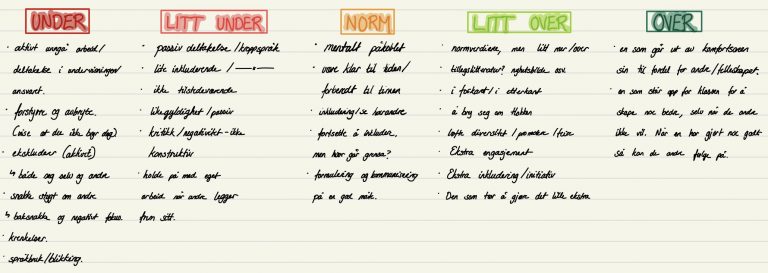 UNDER
· aktivt unngå arbeid/
deltakelse i undervisninger/
ansvart.
· forstyrre og avbryte.
(vise at du ikke bryr deg)
· ekskluderer (aktivt)
↳ både seg selv og andre
· snakke stygt om andre
↳ baksnakke og negativt fokus.
· krenkelser.
· språkbruk/blikking.
LITT UNDER
· passiv deltakelse/kroppspråk
· lite inkluderende / —"—
· ikke tilstedeværende
· likegyldighet/passiv
· kritikk/negativitet - ikke
konstruktiv
· holde på med eget
arbeid når andre legger
frem sitt.
NORM
· mentalt påkoblet
· være klar til tiden/
forberedt til timen
· inkludering/se hverandre
· fortsette å inkludere,
men hvor går grensa?
· formulering og kommunisering
på en god måte.
LITT OVER
· normverdiene, men litt mer/over
· tilleggslitteratur? nyhetsbilde osv.
· i forkant/i etterkant
· å bry seg om flokken
· løfte diversitet / promotere /
· Ekstra engasjement
· Ekstra inkludering/initiativ
· Den som tør å gjøre det lille ekstra.
OVER
· en som går ut av komfortsonen
sin til fordel for andre/felleskapet.
· en som står opp for klassen for å
skape noe bedre, selv når de andre
ikke vil. Når en har gjort noe godt
så kan de andre følge på.